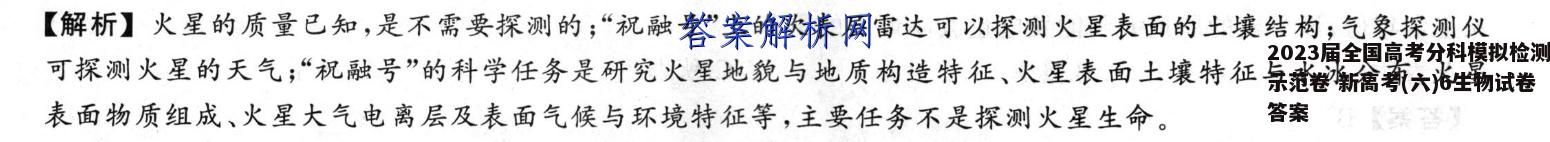 【解析】火星的质量已知,是不需要探测的;“祝融号”雷达可以探测火星表面的土壤结构;气象探测仪
答案解析网
可探测火星的天气;“祝融号”的科学任务是研究火星地貌与地质构造特征、火星表面土壤特征
表面物质组成、火星大气电离层及表面气候与环境特征等,主要任务不是探测火星生命。
2023届全国高考分科模拟检测
示范卷 新高考(六)6生物试卷
答案